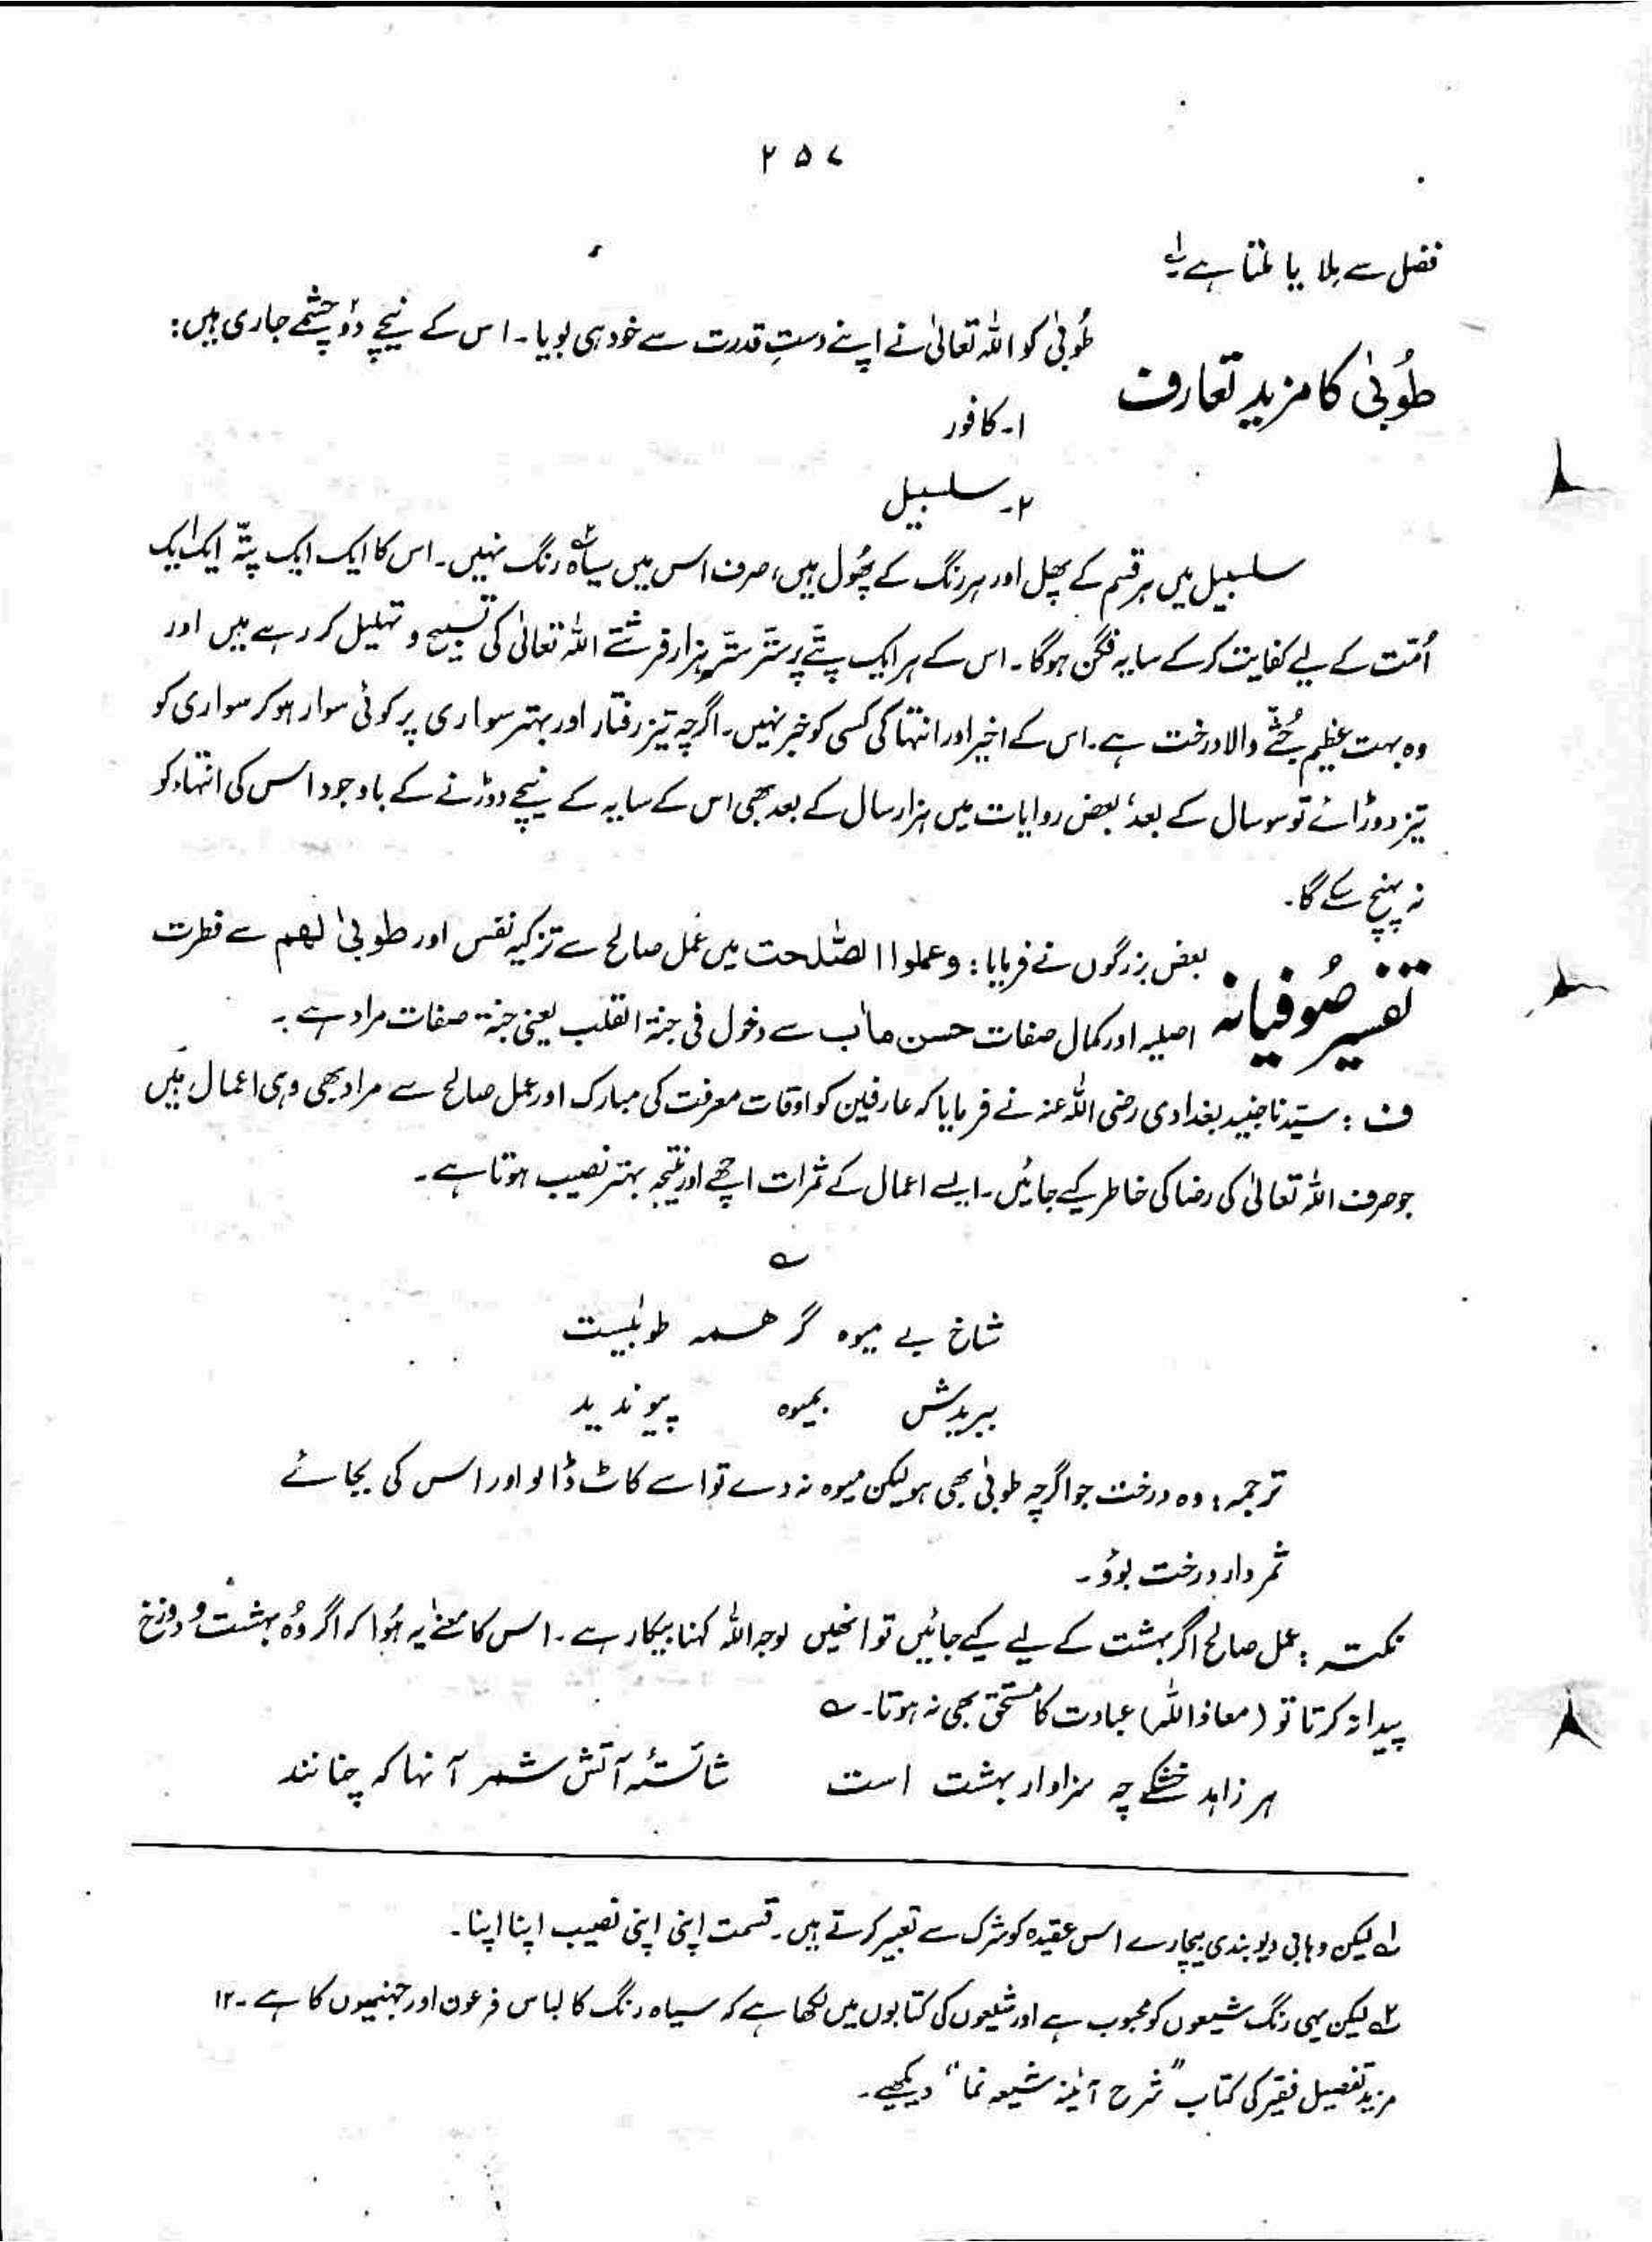 ۲۵۷
فضل سے ملا یا ملتا ہے لے
طُوبیٰ کا مزید تعارف
طُوبیٰ کو اللہ تعالیٰ نے اپنے دستِ قدرت سے خود ہی بویا۔ اس کے نیچے دو۲ چشمے جاری ہیں:
۱۔ کافور
۲۔ سلسبیل
سلسبیل میں ہر قسم کے پھل اور ہر رنگ کے پھُول ہیں، صرف اس میں سیاہ رنگ نہیں۔ اس کا ایک ایک پتّہ ایک ایک
اُمّت کے لیے کفایت کرکے سایہ فگن ہوگا۔ اس کے ہر ایک پتّے پر ستّر ستّر ہزار فرشتے اللہ تعالیٰ کی تسبیح و تہلیل کر رہے ہیں اور
وہ بہت عظیم جُثّے والا درخت ہے۔ اس کے اخیر اور انتہا کی کسی کو خبر نہیں۔ اگرچہ تیز رفتار اور بہتر سواری پر کوئی سوار ہوکر سواری کو
تیز دوڑائے تو سو سال کے بعد، بعض روایات میں ہزار سال کے بعد بھی اس کے سایہ کے نیچے دوڑنے کے باوجود اس کی انتہاء کو
نہ پہنچ سکے گا۔
تفسیر صُوفیانہ
بعض بزرگوں نے فرمایا: وعملوا الصّٰلحت میں عمل صالح سے تزکیہ نفس اور طوبیٰ لھم سے فطرت
اصلیہ اور کمال صفات حسن ماٰب سے دخول فی جنۃ القلب یعنی جنۃ صفات مراد ہے۔
ف : سیّدنا جنید بغدادی رضی اللہ عنہ نے فرمایا کہ عارفین کو اوقات معرفت کی مبارک اور عمل صالح سے مراد بھی وہی اعمال ہیں
جو صرف اللہ تعالیٰ کی رضا کی خاطر کیے جائیں۔ ایسے اعمال کے ثمرات اچھے اور نتیجہ بہتر نصیب ہوتا ہے۔
؎
شاخ بے میوہ گر ھمہ طوبیٰست
ببریدش بمیوہ پیوندید
ترجمہ: وہ درخت جو اگرچہ طوبیٰ بھی ہو لیکن میوہ نہ دے تو اسے کاٹ ڈالو اور اس کی بجائے
ثمردار درخت بوؤ۔
نکتہ : عمل صالح اگر بہشت کے لیے کیے جائیں تو انھیں لوجہ اللہ کہنا بیکار ہے۔ اس کا معنےٰ یہ ہُوا کہ اگر وُہ بہشت و دوزخ
پیدا نہ کرتا تو (معاذ اللہ) عبادت کا مستحق بھی نہ ہوتا۔ ؎
ہر زاہد خشکے چہ سزاوار بہشت است شائستۂ آتش شمر آنہا کہ چنانند
لے لیکن وہابی دیوبندی بیچارے اس عقیدہ کو شرک سے تعبیر کرتے ہیں۔ قسمت اپنی اپنی نصیب اپنا اپنا۔
۲ے لیکن یہی رنگ شیعوں کو محبوب ہے اور شیعوں کی کتابوں میں لکھا ہے کہ سیاہ رنگ کا لباس فرعون اور جہنمیوں کا ہے۔ ۱۲
مزید تفصیل فقیر کی کتاب "شرح آئینہ شیعہ نما" دیکھیے۔